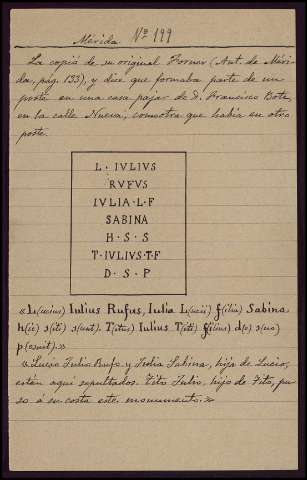 Mérida Nº 199
La copió de su original Forner (Ant. de Méri-
da, pág. 133), y dice que formaba parte de un
poste en una casa pajar de D. Francisco Bote,
en la calle Nueva, con otra que había en otro
poste.
L · IVLIVS
RVFVS
IVLIA · L · F
SABINA
H · S · S
T · IVLIVS · T · F
D · S · P
«L(ucius) Iulius Rufus, Iulia L(ucii) f(ilia) Sabina
h(ic) s(iti) s(unt). T(itus) Iulius T(iti) f(ilius) d(e) s(uo)
p(osuit).»
«Lucio Julio Rufo y Julia Sabina, hija de Lucio,
están aquí sepultados. Tito Julio, hijo de Tito, pu-
so á su costa este monumento.»